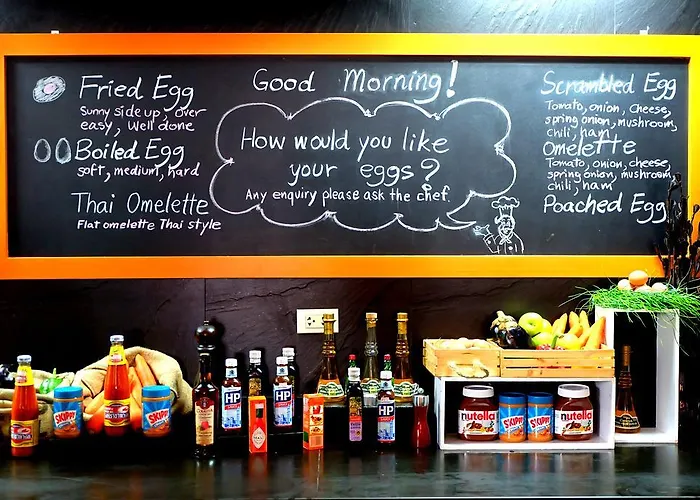 Good Morning!
Fried Egg
Sunny side up, over
easy, Well done
Boiled Egg
soft, medium, hard
Thai Omelette
Flat omelette Thai style
How would you like
your eggs?
Any enquiry please ask the chef.
Scrambled Egg
Tomato, onion, cheese,
spring onion, mushroom,
chili, ham
Omelette
Tomato, onion, cheese,
spring onion, mushroom,
chili, ham
Poached Egg
SKIPPY
SKIPPY
HP
HP
HP
HP
nutella
SKIPPY
SKIPPY
nutella